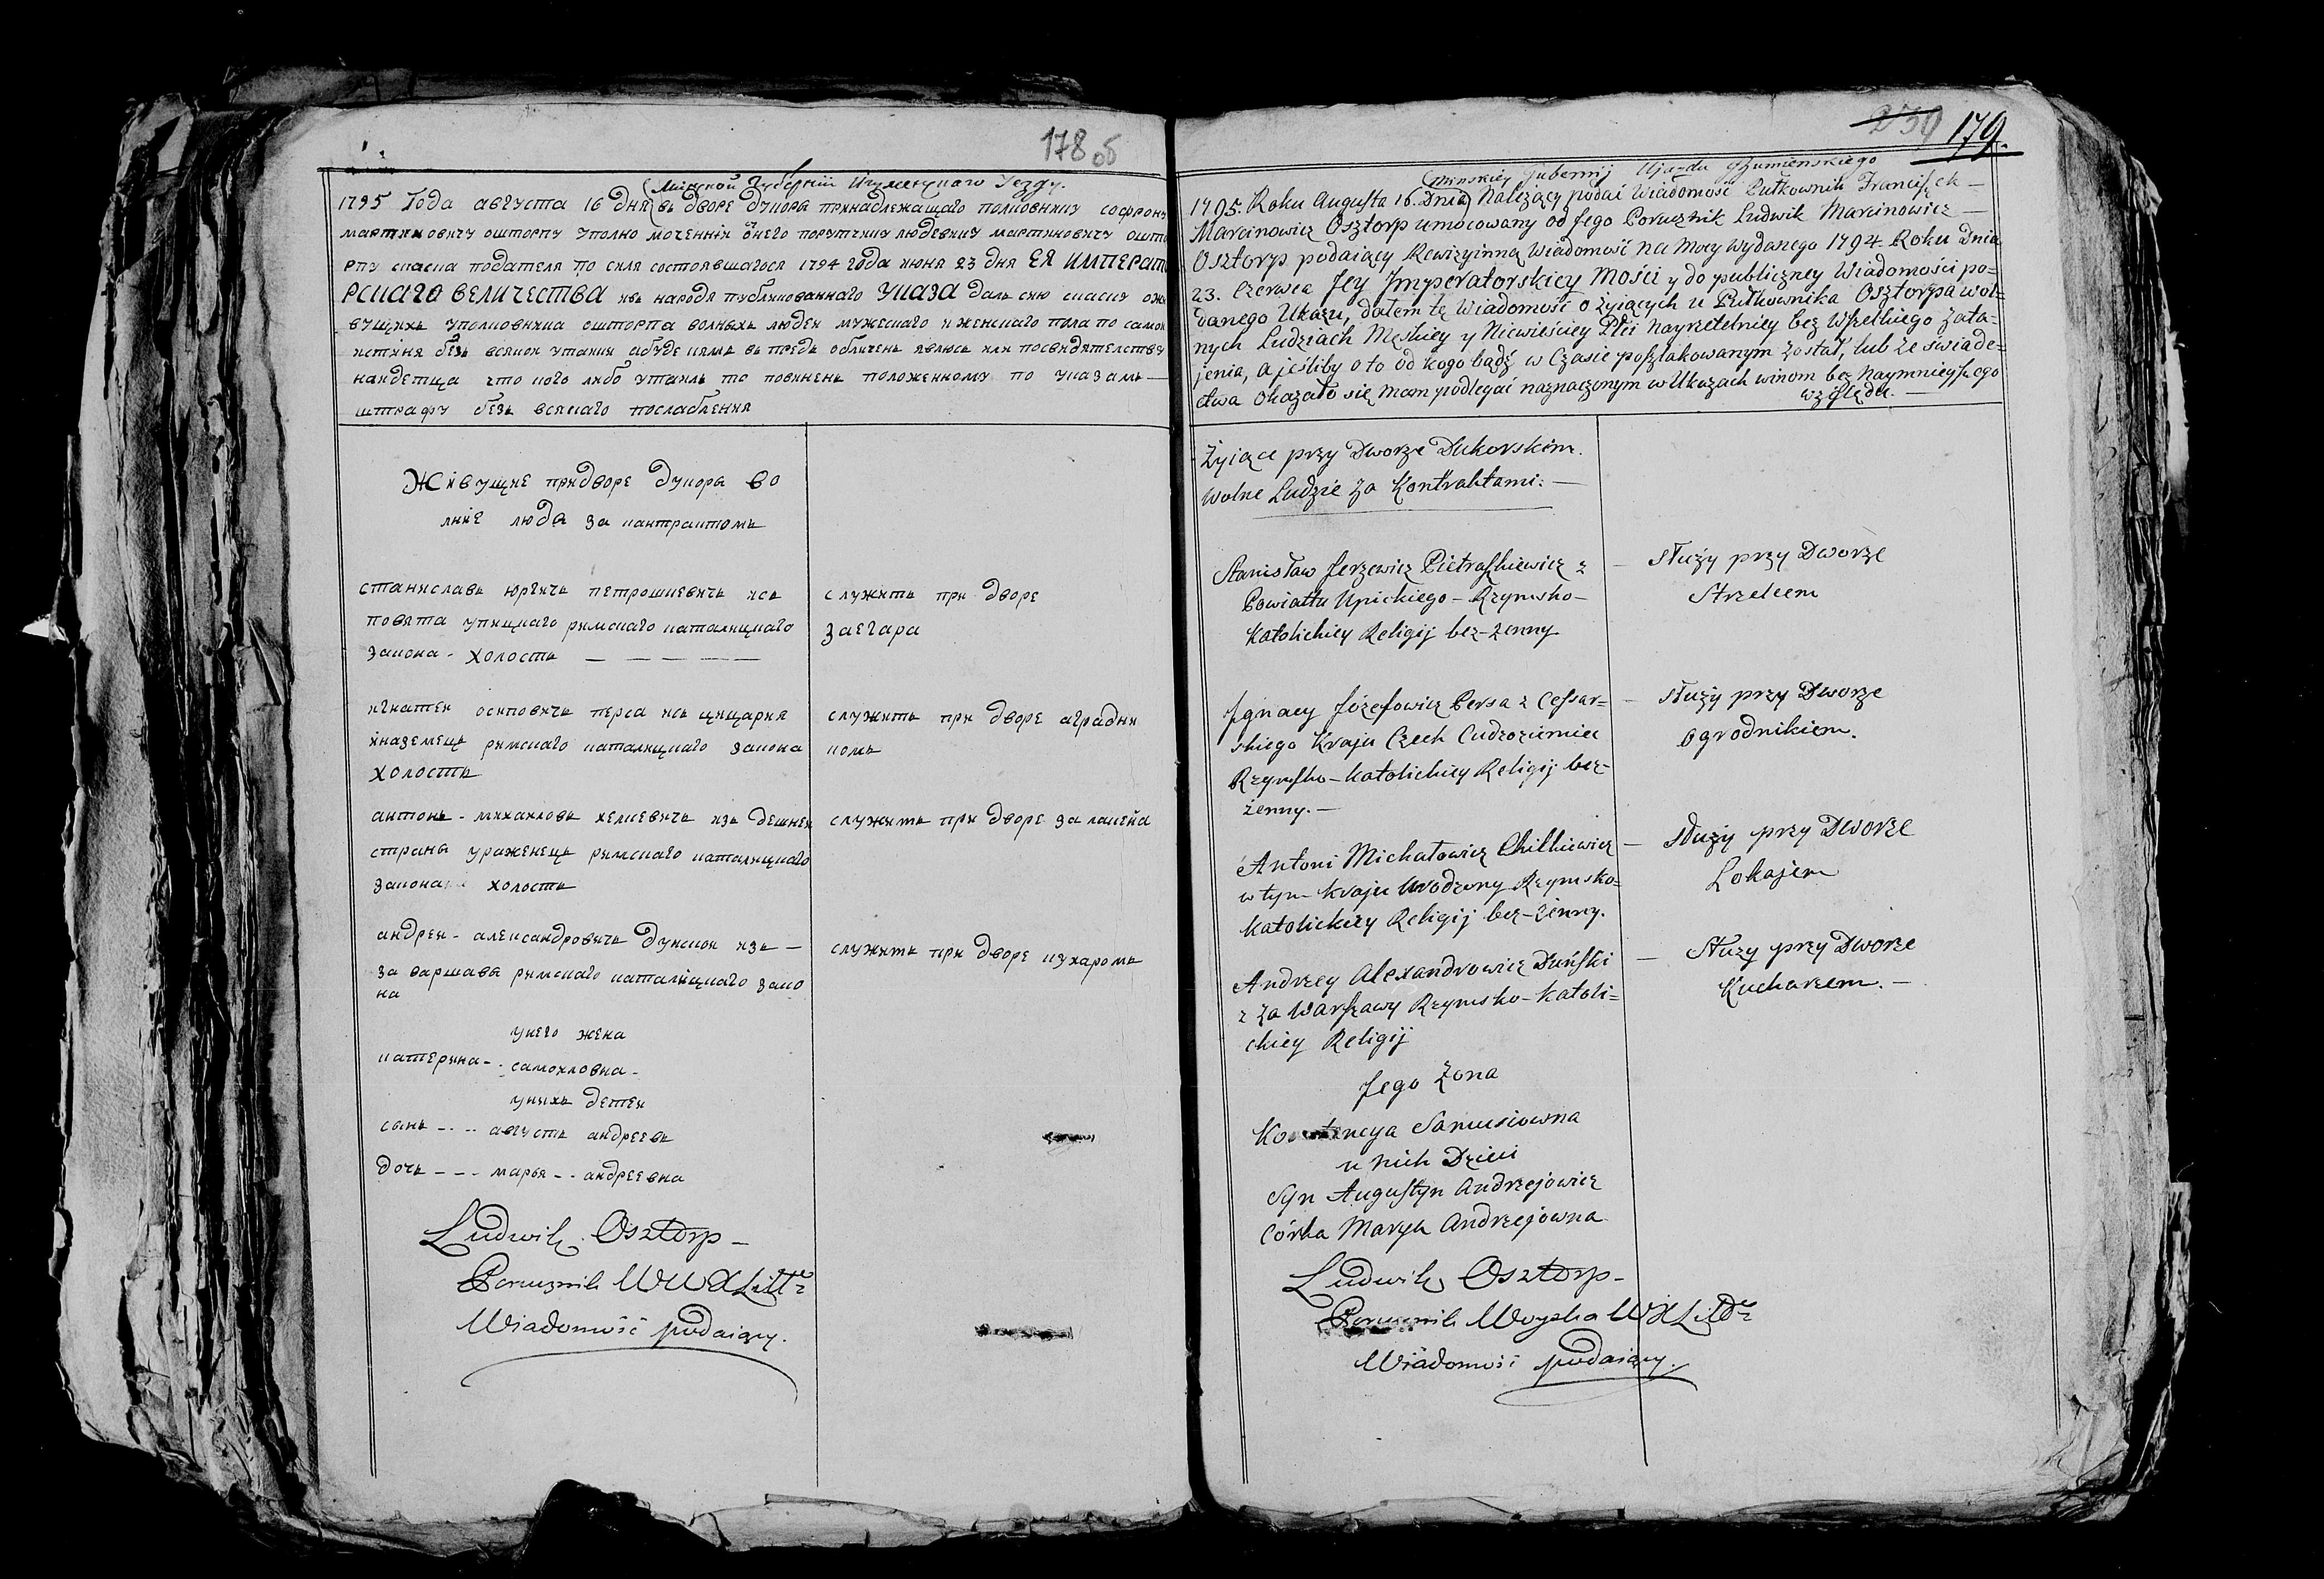 178 об
Минской Губернии Игуменского Уезду.
1795 Года августа 16 дня въ дворе дукора принадлежащаго полковнику софрону
мартиновичу ошторпу уполно моченнїи от онего порутчику людвику мартиновичу ошто
рпу списка подателя по силе состоявшагося 1794 года июня 23 дня ЕЯ ИМПЕРАТО
РСКАГО ВЕЛИЧЕСТВА въ народъ публикованнаго УКАЗА даль сию сказку о жи
вущихъ у полковника ошторпа волныхъ людеи мужескаго и женскаго пола по самои
истине безъ всякои утаики а буде кемъ въ предь обличень явлюся или посвидетелству
наидетца что кого либо утаиль то повинень положенному по указамъ —
штрафу безъ всякаго послабления
Живущие при дворе дукора во
лние люди за кантрактомъ
станиславъ юревичъ петрошкевичъ изъ
повята упицкаго римского каталицкаго
закона - холостъ — — — — —
служитъ при дворе
за егара
игнатеи осиповичъ перса изъ цицарии
иназемецъ римского каталицкаго закона
холостъ
служитъ при дворе аградни
комъ
антонъ - михаиловъ хелкевичъ изъ здешнеи
страны уроженецъ римского каталицкаго
закона холостъ
служитъ при дворе за лакеиа
андреи - александровичъ дунскои изъ —
за варшавы римского каталицкаго зако
на
служитъ при дворе кухаромъ
у него жена
катерина - самоиловна -
у нихъ детеи
сынъ - - - - августъ андреевъ
дочъ - - - - марья - - андреевна
Ludwik Osztorp —
Porucznik W W X Littº
Wiadomość podaiący.
239 179.
Minskiey Gubernij Ujazdu Ihumenskiego
1795. Roku Augusta 16. Dnia Nalizący podać Wiadomość Pułkownik Franciszek —
Marcinowicz Osztorp umocowany od Jego Porucznik Ludwik Marcinowicz —
Osztorp podaiący Rewizyinną Wiadomość na Mocy wydanego 1794. Roku Dnia
23. Czerwca Jey Jmperatorskiey Mości y do publiczney Wiadomości po=
danego Ukazu, dałem tę Wiadomość o żyiących u Pułkownika Osztorpa wol=
nych Ludziach Męskiey y Niewieściey Płci Nayrzetelniey bez Wszelkiego Zata=
jenia, a jeśliby o to od kogo bądź w Czasie poszlakowanym został, lub ze świade=
ctwa okazało się, Mam podlegać naznaczonym w Ukazach winom bez Naymnieyszego
względu. —
Żyiące przy Dworze Dukorskim.
Wolne Ludzie za Kontraktami: —
Stanisław Jerzewicz Pietraszkiewicz z
Powiatu Upickiego - Rzymsko -
Katolickiey Religij bez-żenny
— Służy przy Dworze
Strzelcem
Jgnacy Józefowicz Persa z Cessar=
skiego Kraju Czech Cudzoziemiec
Rzymsko - Katolickiey Religij bez-
żenny. —
— służy przy Dworze
Ogrodnikiem.
Antoni Michałowicz Chilkiewicz
w tym Kraju Urodzony Rzymsko=
Katolickiey Religij bez-żenny.
— służy przy Dworze
Lokajem
Andrzey Alexandrowicz Duński
z za Warszawy Rzymsko - Katoli=
ckiey Religij
— Służy przy Dworze
Kucharzem. —
Jego Żona
Konstancya Samusiowna
u Nich Dzieci
Syn Augustyn Andrzejowicz
Córka Marya Andrzejowna
Ludwik Osztorp -
Porucznik Woyska W X Littº
Wiadomość podaiący.